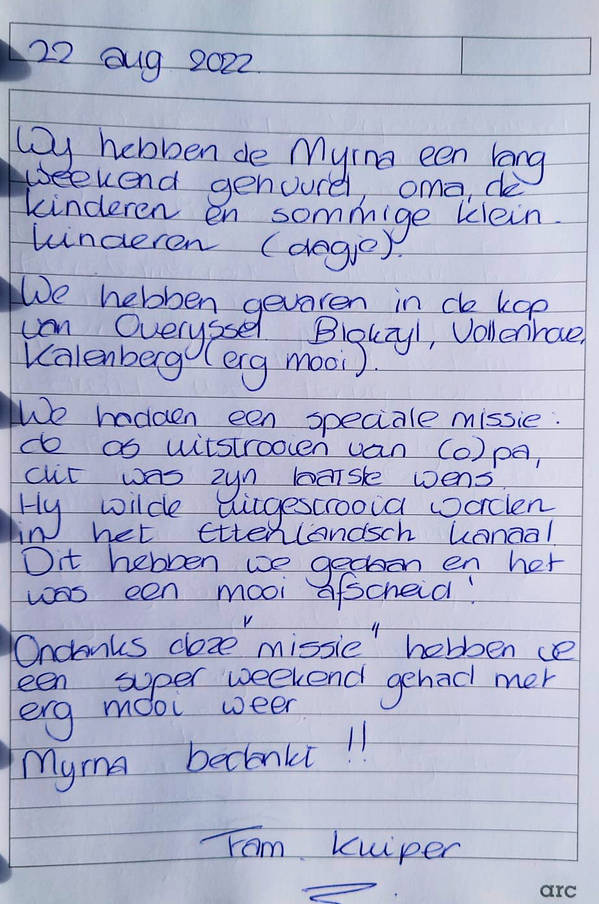 22 aug 2022.
Wy hebben de Myrna een lang
weekend gehuurd, oma, de
kinderen en sommige klein-
kinderen (dagje).
We hebben gevaren in de kop
van Overyssel Blokzyl, Vollenhove,
Kalenberg (erg mooi).
We hadden een speciale missie:
de as uitstrooien van (o)pa,
dit was zyn laatste wens.
Hy wilde uitgestrooid worden
in het Ettenlandsch kanaal
Dit hebben we gedaan en het
was een mooi afscheid!
Ondanks deze "missie" hebben we
een super weekend gehad met
erg mooi weer
Myrna bedankt !!
Fam. Kuiper
arc